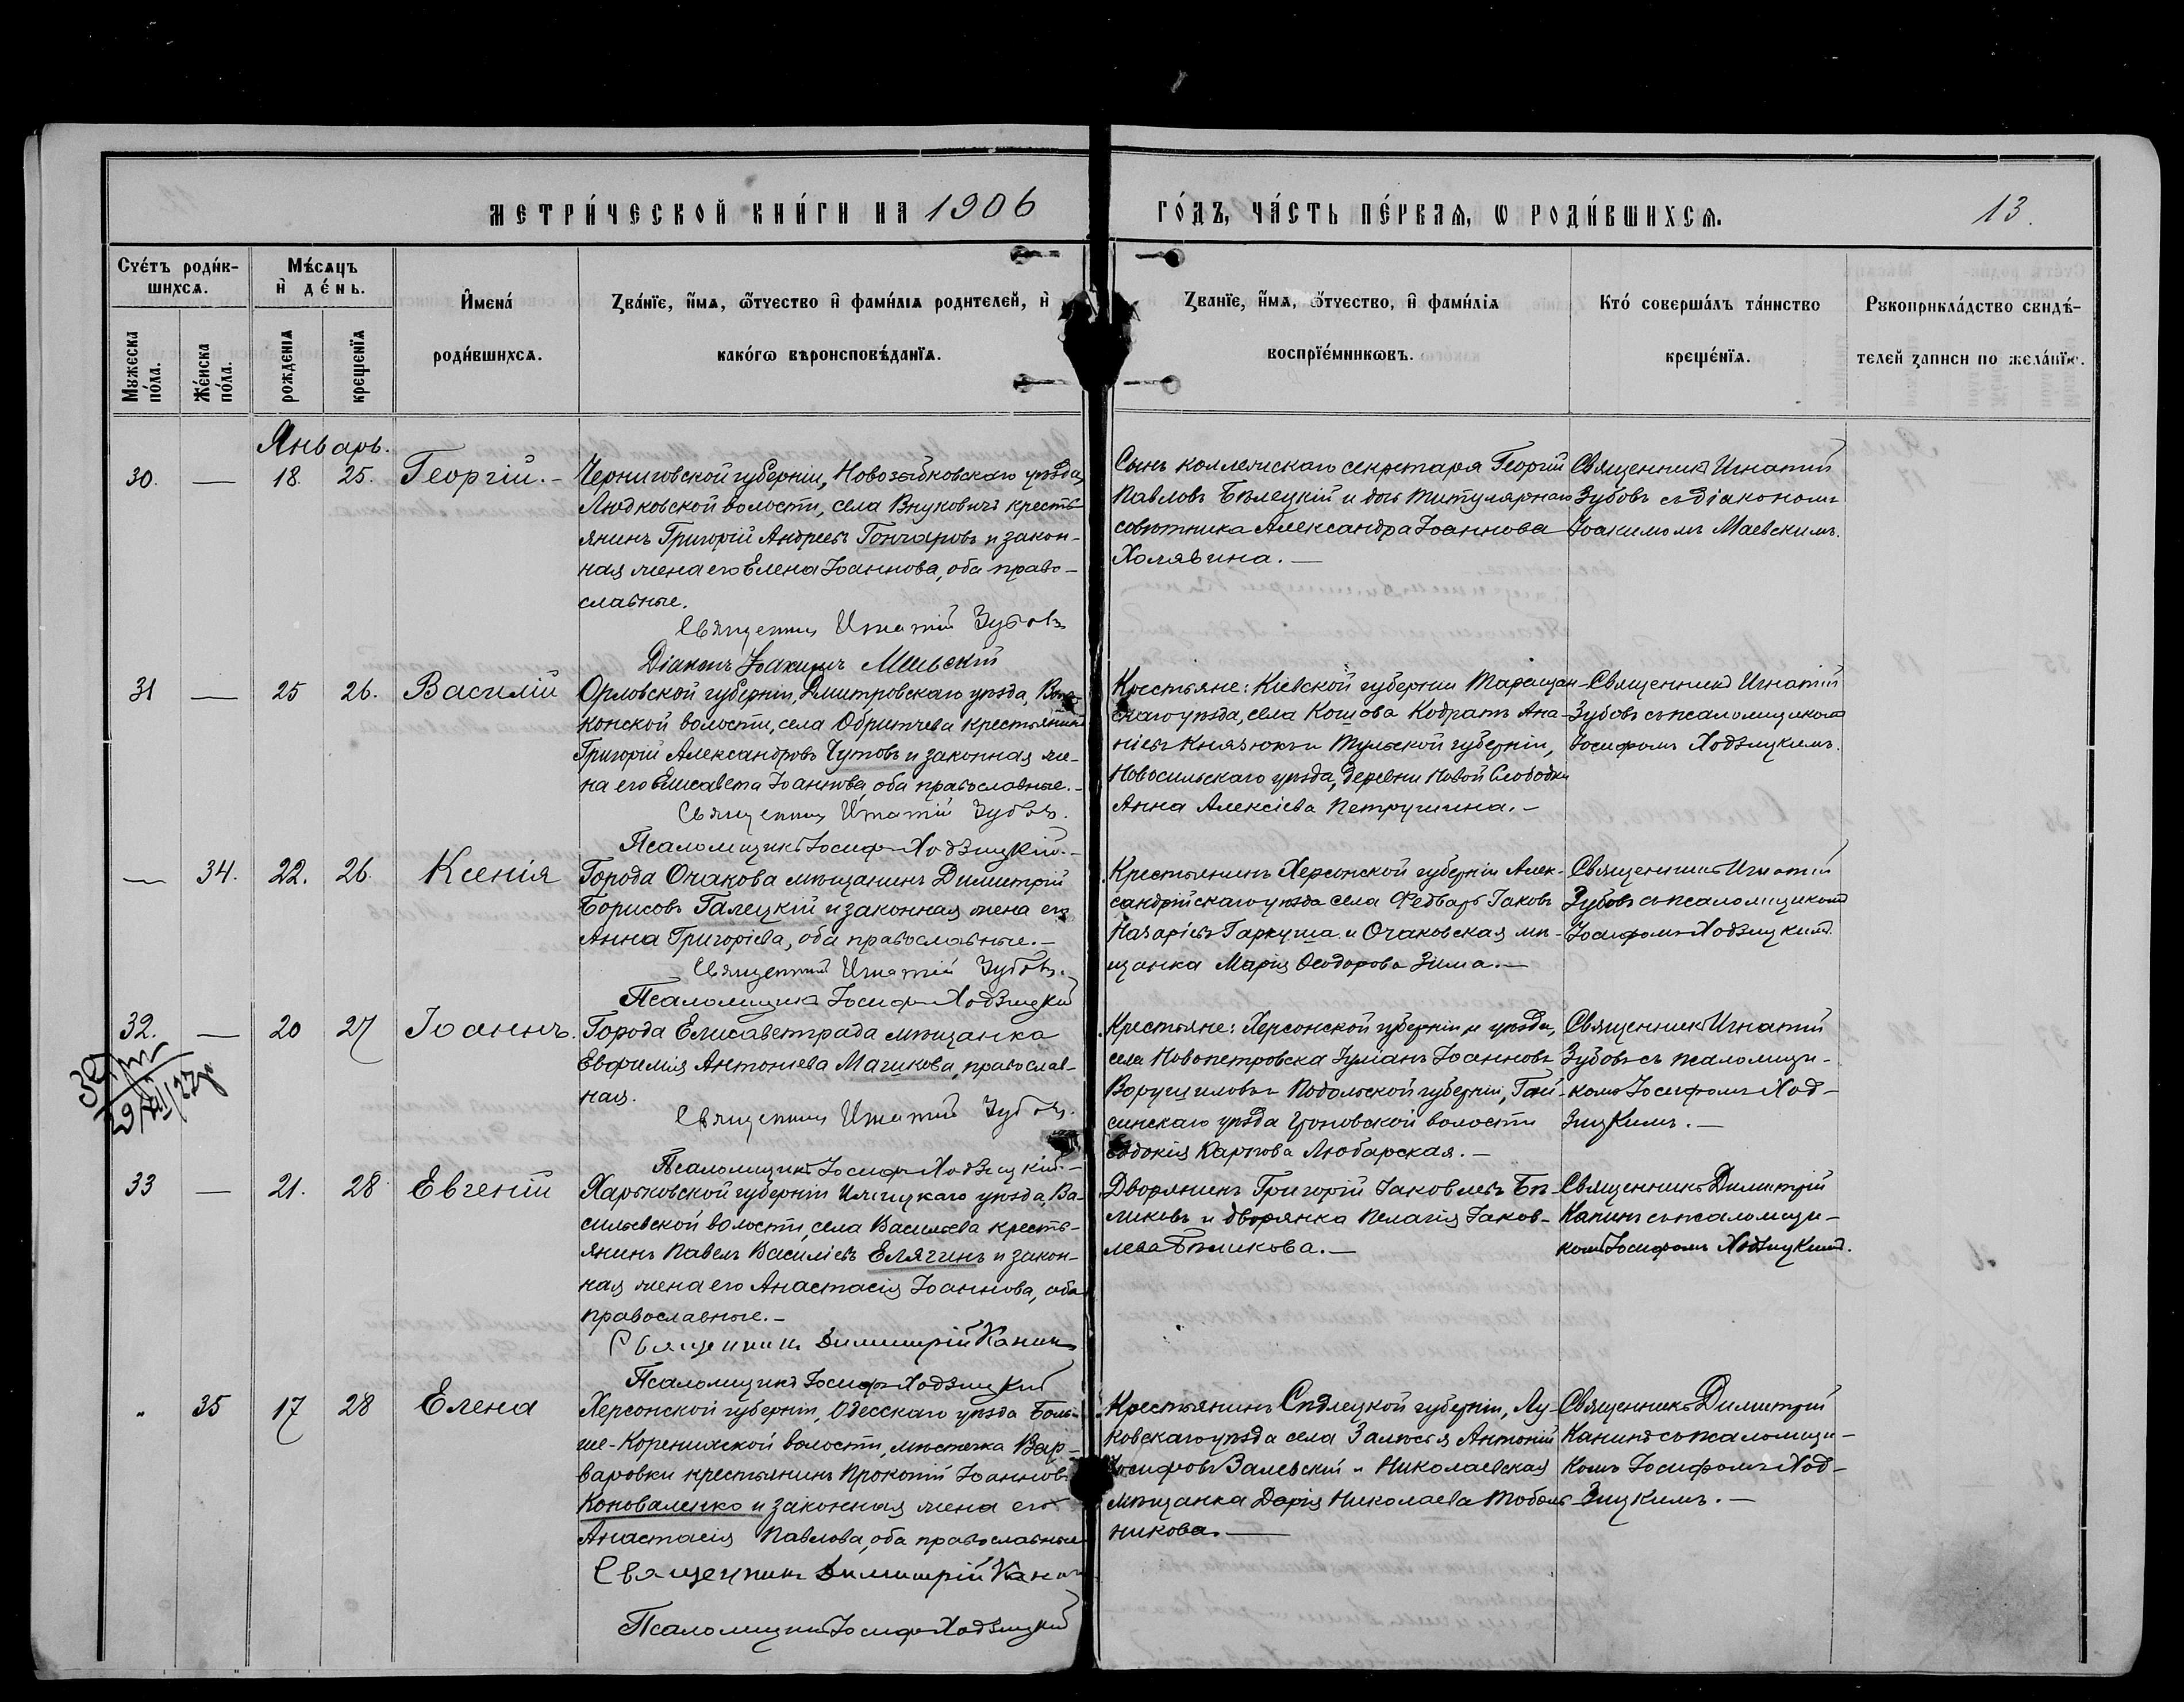 МЕТРИ́ЧЕСКОЙ КНИ́ГИ НА 1906 ГО́ДЪ, ЧА́СТЬ ПЕ́РВАЯ, Ѡ РОДИ́ВШИХСѦ. 13.
Счéтъ роди́в-
шихсѧ.
Мужеска по́ла.
Же́нска по́ла.
Мѣ́сѧцъ
и҆ де́нь.
рожденїѧ
крещенїѧ
И҆мена́
роди́вшихсѧ.
Ꙁва́нїе, и҆́мѧ, ѻ҆́тчество и҆ фами́лїѧ родителей, и҆
како́гѡ вѣроисповѣ́данїѧ.
Ꙁванїе, и҆́мѧ, ѻ҆́тчество, и҆ фами́лїѧ
воспрїе́мникѡвъ.
Кто́ соверша́лъ та́инство
креще́нїѧ.
Рукоприкла́дство свидѣ́-
телей ꙁаписи по жела́нїю.
Январь.
30. — 18. 25. Георгій.-
Черниговской губерніи, Новозыбковскаго уѣзда,
Людковской волости, села Внуковичъ кресть-
янинъ Григорій Андреевъ Гончаровъ и закон-
ная жена его Елена Іоаннова, оба право-
славные.
Священникъ Игнатій Зубовъ
Діаконъ Іоакимъ Маевскій
Сынъ коллежскаго секретаря Георгій
Павловъ Бѣлецкій и дочь титулярнаго
совѣтника Александра Іоаннова
Холявина.—
Священникъ Игнатій
Зубовъ съ діакономъ
Іоакимомъ Маевскимъ.
31 — 25 26. Василій
Орловской губерніи, Дмитровскаго уѣзда,
конской волости, села Обратчева крестьянинъ
Григорій Александровъ Чутовъ и законная же-
на его Елисавета Іоаннова, оба православные.-
Священникъ Игнатій Зубовъ.
Псаломщикъ Іосифъ Ходзицкій.-
Крестьяне: Кіевской губерніи Таращан-
скаго уѣзда, села Кошова Кодратъ Ана-
ніевъ Князюкъ и Тульской губерніи,
Новосильскаго уѣзда, деревни Новой Слободки
Анна Алексіева Петрушина.-
Священникъ Игнатій
Зубовъ съ псаломщикомъ
Іосифомъ Ходзицкимъ.
— 34. 22. 26. Ксенія
Города Очакова мѣщанинъ Димитрій
Борисовъ Галецкій и законная жена его
Анна Григоріева, оба православные.-
Священникъ Игнатій Зубовъ.
Псаломщикъ Іосифъ Ходзицкій
Крестьянинъ Херсонской губерніи Алек-
сандрійскаго уѣзда села Федваръ Іаковъ
Назаріевъ Гаркуша и Очаковская мѣ-
щанка Марія Ѳеодорова Зима.—
Священникъ Игнатій
Зубовъ съ псаломщикомъ
Іосифомъ Ходзицкимъ.
32. — 20 27 Іоаннъ.
29/XII/22
Города Елисаветграда мѣщанка
Евфимія Антоніева Машкова, православ-
ная.
Священникъ Игнатій Зубовъ.
Псаломщикъ Іосифъ Ходзицкій.-
Крестьяне: Херсонской губерніи и уѣзда,
села Новопетровска Іуліанъ Іоанновъ
Ворушиловъ и Подольской губерніи, Гай-
синскаго уѣзда волости
Евдокія Карпова Любарская.-
Священникъ Игнатій
Зубовъ съ псаломщи-
комъ Іосифомъ Ход-
зицкимъ.—
33 — 21. 28 Евгеній
Харьковской губерніи уѣзда, Ва-
сильевской волости, села Васильева кресть-
янинъ Павелъ Василіевъ Елягинъ и закон-
ная жена его Анастасія Іоаннова, оба
православные.-
Священникъ Димитрій Канинъ
Псаломщикъ Іосифъ Ходзицкій
Дворянинъ Григорій Іаковлевъ Бѣ-
ликовъ и дворянка Пелагія Іаков-
лева Бѣликова.—
Священникъ Димитрій
Канинъ съ псаломщи-
комъ Іосифомъ Ходзицкимъ.
„ 35 17 28 Елена
Херсонской губерніи, Одесскаго уѣзда Боль-
ше-Коренихской волости, мѣстечка Вар-
варовки крестьянинъ Прокопій Іоанновъ
Коноваленко и законная жена его
Анастасія Павлова, оба православные
Священникъ Димитрій Канинъ
Псаломщикъ Іосифъ Ходзицкій
Крестьянинъ Сѣдлецкой губерніи, Лу-
ковскаго уѣзда села Залѣсья Антоній
Іосифовъ Залевскій и Николаевская
мѣщанка Дарія Николаева Тоболь-
никова.—
Священникъ Димитрій
Канинъ съ псаломщи-
комъ Іосифомъ Ход-
зицкимъ.—